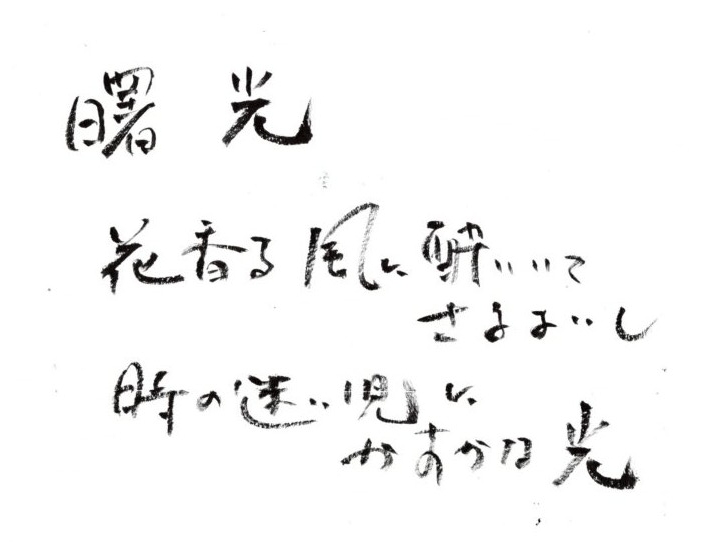 曙光
花香る風に酔いいて
さまよいし
時の迷い児に
かすかな光